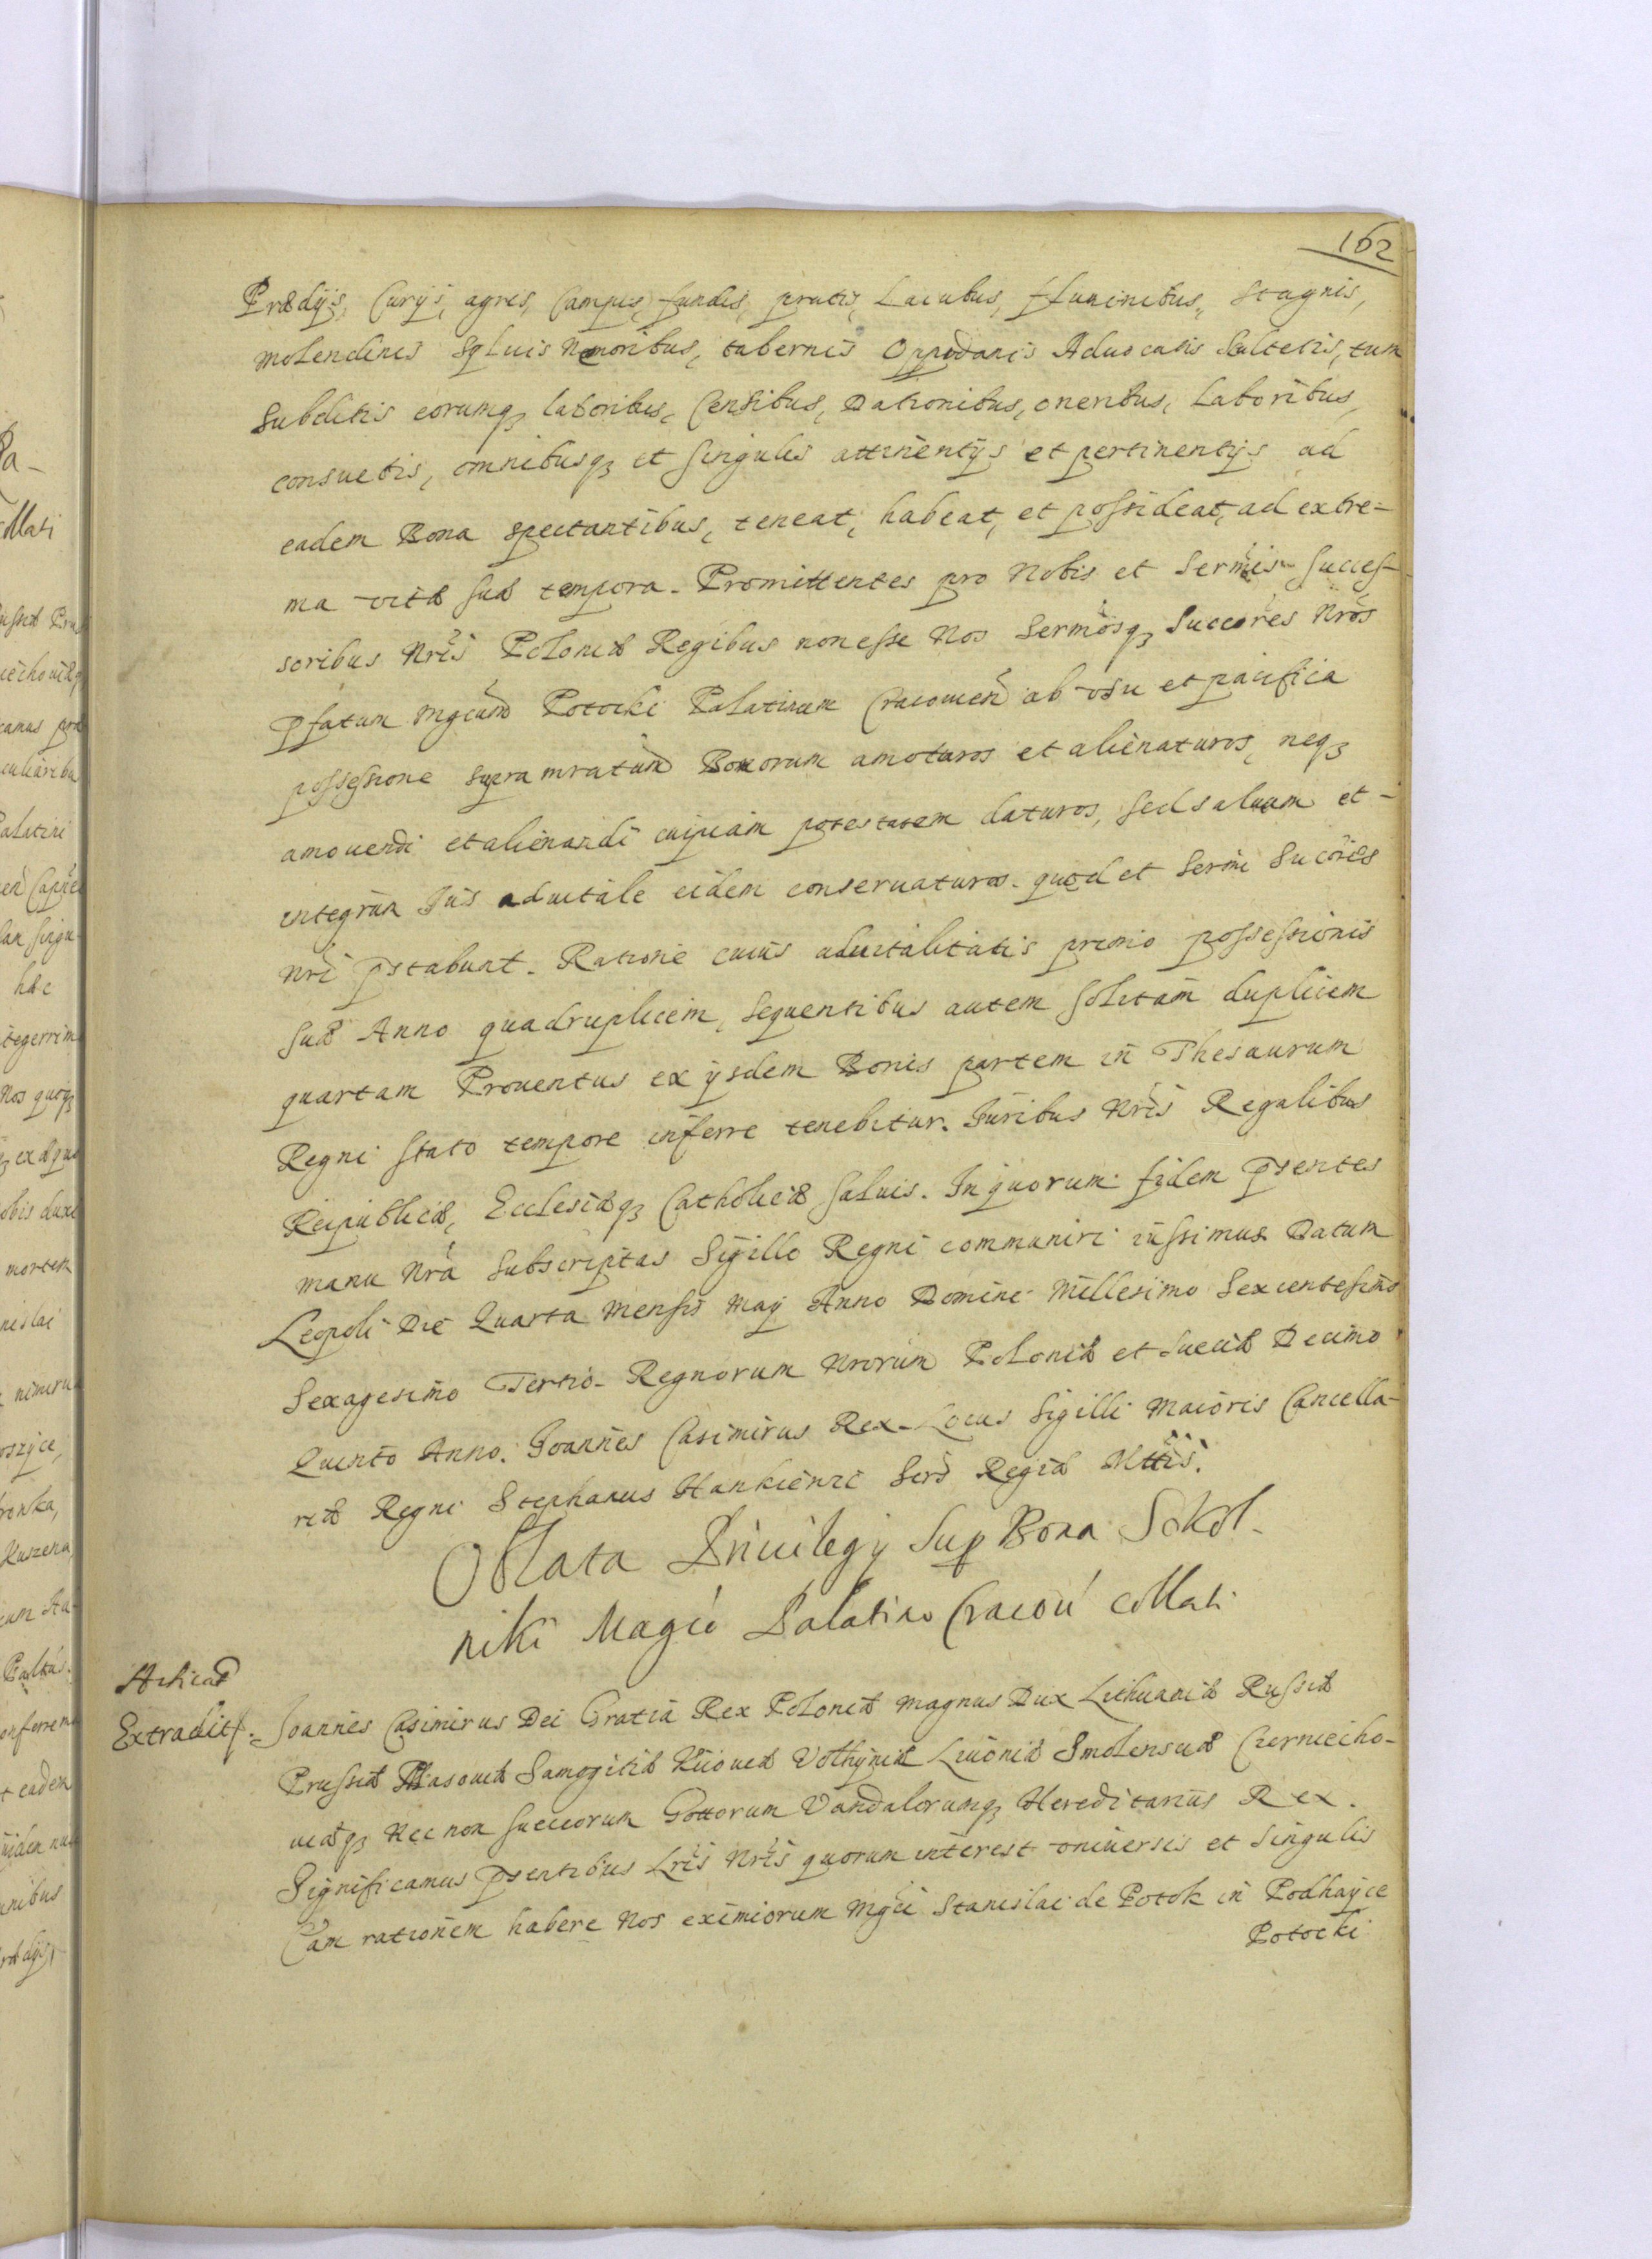 162
Prædijs, Curijs, agris, Campis, fundis, pratis, Lacubus, ffluminibus, stagnis,
molendinis Sylvis Nemoribus, tabernis Oppidanis Advocatis Scultetis, tum
Subditis eorumq3 laboribus, Censibus, Dationibus, oneribus, Laboribus,
consuetis, omnibusq3 et singulis attinentijs et pertinentijs ad
eadem Bona spectantibus, teneat, habeat, et possideat, ad extre-
ma vitæ suæ tempora. Promittentes pro Nobis et Sermis Succes-
soribus Nris Poloniæ Regibus non esse Nos Sermosq3 Succores Nros
pfatum Mgcum Potocki Palatinum Cracovien ab vsu et pacifica
possessione supra mratum Bonorum amoturos et alienaturos, neq3
amovendi et alienandi cuipiam potestatem daturos, sed salvum et -
integrum Jus advitale eidem conservaturos. quod et Sermi Succores
Nri pstabunt. Ratione cuius advitalitatis primo possessionis
suæ Anno quadruplicem, sequentibus autem solitam duplicem
quartam Proventus ex ijsdem Bonis partem in Thesaurum
Regni stato tempore inferre tenebitur. Juribus Nris Regalibus
Reipublicæ, Ecclesiæq3 Catholicæ salvis. In quorum fidem psentes
manu Nra Subscriptas Sigillo Regni communiri iussimus. Datum
Leopoli Die Quarta Mensis Maij Anno Domini Millesimo Sexcentesimo
Sexagesimo Tertio. Regnorum Nrorum Poloniæ et Sueciæ Decimo
Quinto Anno. Joannes Casimirus Rex. Locus Sigilli Maioris Cancella-
riæ Regni Stephanus Hankiewic Secr Regiæ Mttis.
Oblata Privilegij Sup Bona Sokol-
niki Magco Palatino Cracov collati
Extradit
Joannes Casimirus Dei Gratia Rex Poloniæ Magnus Dux Lithuaniæ Russiæ
Prussiæ Masoviæ Samogitiæ Kiioviæ Volhyniæ Livoniæ Smolensciæ Czerniecho-
viæq3 Nec non Suecorum Gottorum Vandalorumq3 Hereditarius Rex.
Significamus psentibus Lris Nris quorum interest vniversis et singulis
Eam rationem habere Nos eximiorum Mgci Stanislai de Potok in Podhayce
Potocki